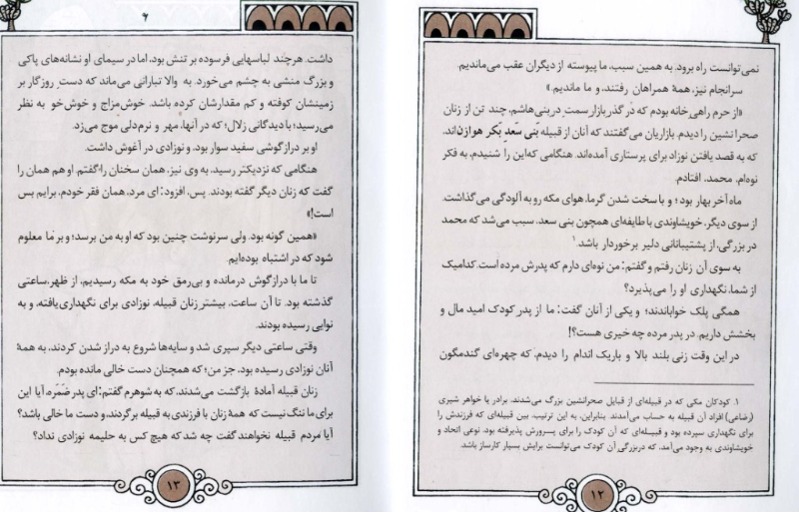 نمی‌توانست راه برود. به همین سبب، ما پیوسته از دیگران عقب می‌ماندیم.
سرانجام نیز، همهٔ همراهان رفتند، و ما ماندیم.»
«از حرم راهی خانه بودم که در گذر بازار سمت در بنی‌هاشم، چند تن از زنان
صحرانشین را دیدم. بازاریان می‌گفتند که آنان از قبیله بنی سعدِ بَکر هوازن‌اند،
که به قصد یافتن نوزاد برای پرستاری آمده‌اند. هنگامی که این را شنیدم، به فکر
نوه‌ام، محمد، افتادم.
ماه آخر بهار بود؛ و با سخت شدن گرما، هوای مکه رو به آلودگی می‌گذاشت.
از سوی دیگر، خویشاوندی با طایفه‌ای همچون بنی سعد، سبب می‌شد که محمد
در بزرگی، از پشتیبانانی دلیر برخوردار باشد.۱
به سوی آن زنان رفتم و گفتم: من نوه‌ای دارم که پدرش مرده است. کدامیک
از شما، نگهداری او را می‌پذیرد؟
همگی پلک خواباندند؛ و یکی از آنان گفت: ما از پدر کودک امید مال و
بخشش داریم. در پدر مرده چه خیری هست؟!
در این وقت زنی بلند بالا و باریک اندام را دیدم، که چهره‌ای گندمگون
۱. کودکان مکی که در قبیله‌ای از قبایل صحرانشین بزرگ می‌شدند، برادر یا خواهر شیری
(رضاعی) افراد آن قبیله به حساب می‌آمدند. بنابراین، به این ترتیب، بین قبیله‌ای که فرزندش را
برای نگهداری سپرده بود و قبیله‌ای که آن کودک را برای پرورش پذیرفته بود، نوعی اتحاد و
خویشاوندی به وجود می‌آمد، که در بزرگی آن کودک می‌توانست برایش بسیار کارساز باشد.
۱۲
داشت. هرچند لباسهایی فرسوده بر تنش بود، اما در سیمای او نشانه‌های پاکی
و بزرگ منشی به چشم می‌خورد. به والا تبارانی می‌ماند که دست روزگار بر
زمینشان کوفته و کم مقدارشان کرده باشد. خوش‌مزاج و خوش‌خو به نظر
می‌رسید؛ با دیدگانی زلال؛ که در آنها، مهر و نرم‌دلی موج می‌زد.
او بر درازگوشی سفید سوار بود، و نوزادی در آغوش داشت.
هنگامی که نزدیکتر رسید، به وی نیز، همان سخنان را گفتم. او هم همان را
گفت که زنان دیگر گفته بودند. پس، افزود: ای مرد، همان فقر خودم، برایم بس
است!»
«همین گونه بود. ولی سرنوشت چنین بود که او به من برسد؛ و بر ما معلوم
شود که در اشتباه بوده‌ایم.
تا ما با درازگوش درمانده و بی‌رمق خود به مکه رسیدیم، از ظهر، ساعتی
گذشته بود. تا آن ساعت، بیشتر زنان قبیله، نوزادی برای نگهداری یافته، و به
نوایی رسیده بودند.
وقتی ساعتی دیگر سپری شد و سایه‌ها شروع به دراز شدن کردند، به همهٔ
آنان نوزادی رسیده بود، جز من؛ که همچنان دست خالی مانده بودم.
زنان قبیله آمادهٔ بازگشت می‌شدند، که به شوهرم گفتم: ای پدر ضَمَره، آیا این
برای ما ننگ نیست که همهٔ زنان با فرزندی به قبیله برگردند، و دست ما خالی باشد؟
آیا مردم قبیله نخواهند گفت چه شد که هیچ کس به حلیمه نوزادی نداد؟
۱۳